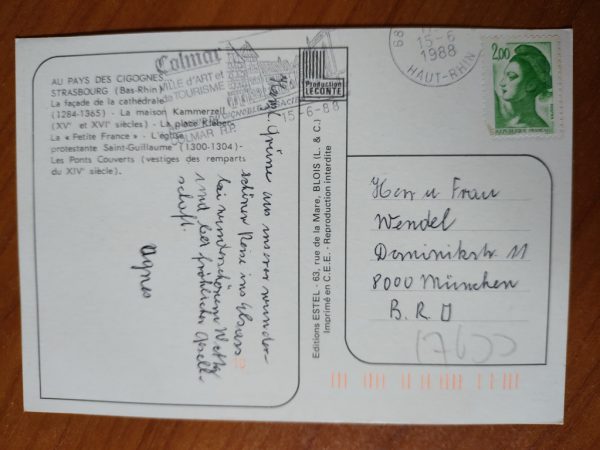 AU PAYS DES CIGOGNES
STRASBOURG (Bas-Rhin)
La façade de la cathédrale
(1284-1365) - La maison Kammerzell
(XVe et XVIe siècles) - La place Kléber
La « Petite France » - L'église
protestante Saint-Guillaume (1300-1304) -
Les Ponts Couverts (vestiges des remparts
du XIVe siècle).
Colmar
VILLE d'ART et
de TOURISME
VIGNOBLE
COLMAR R.P.
15-6-88
Production
LECONTE
68
15-6
1988
HAUT-RHIN
2,00
REPUBLIQUE FRANÇAISE
Herzl. Grüsse aus unserer wunder-
schönen Reise ins Elsass
bei wunderschönem Wetter
und bei fröhlicher Gesell-
schaft.
Agnes
Editions ESTEL - 63, rue de la Mare, BLOIS (L. & C.)
Imprimé en C.E.E. - Reproduction interdite
Herr u Frau
Wendel
Dominikstr. 11
8000 München
B. R. D